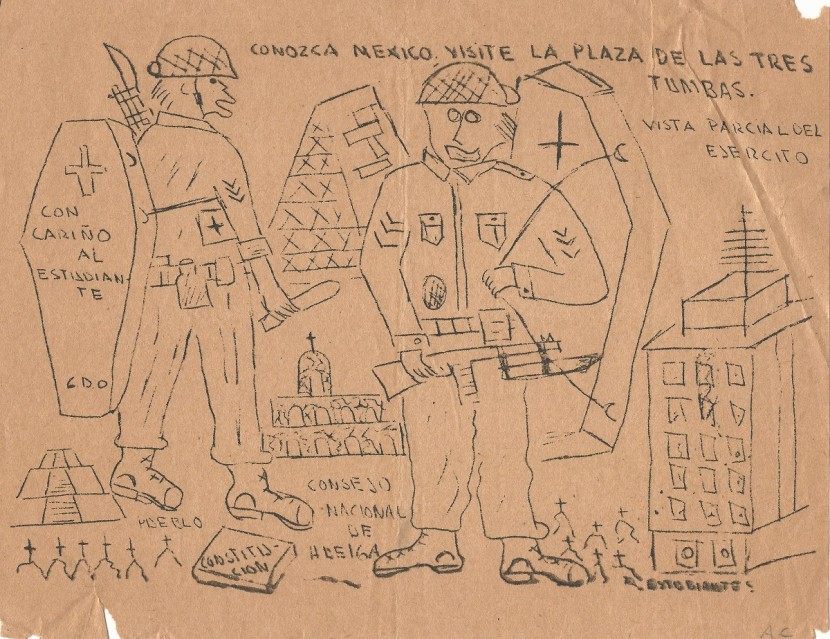 CONOZCA MEXICO. VISITE LA PLAZA DE LAS TRES
TUMBAS.
VISTA PARCIAL DEL
EJERCITO
CON
CARIÑO
AL
ESTUDIAN-
TE
GDO
PUEBLO
CONSTITU-
CION
CONSEJO
NACIONAL
DE
HUELGA
ESTUDIANTES
A.C.